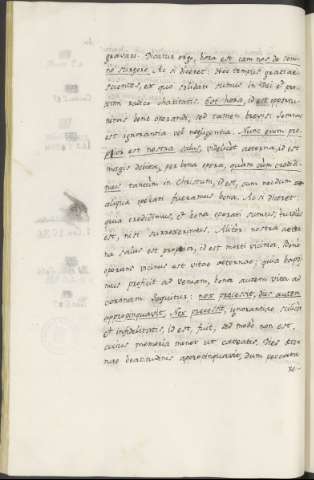 gravari. Dicatur ergo, hora est iam nos de som-
no surgere. Ac si diceret: Hoc tempus gratiae
scientes, ex quo solidati sumus in Dei et pro-
ximi radice charitatis. Est hora, id est opportu-
nitas bene operandi, sed tamen brevis: Somnus
est ignorantia vel negligentia. Nunc enim pro-
pior est nostra salus, videlicet aeterna, id est
magis debita, per bona opera, quam cum credidi-
mus tantum in Christum, id est, cum nondum
aliqua operati fueramus bona. Ac si diceret:
quia credidimus, et bona operati sumus, turpius
est, nisi surrexerimus. Aliter: nostra aeter-
na salus est propior, id est morti vicina. Bene
operans vicinus est vitae aeternae; quia bapti
mus proficit ad veniam, bona autem vita ad
coronam. Sequitur: nox praecessit, dies autem
appropinquavit. Nox praecessit, ignorantiae scilicet
et infidelitatis, id est, fuit, sed modo non est,
cuius memoria minor ut caveatis. Dies aeter-
nae beatitudinis appropinquavit, dum peccata